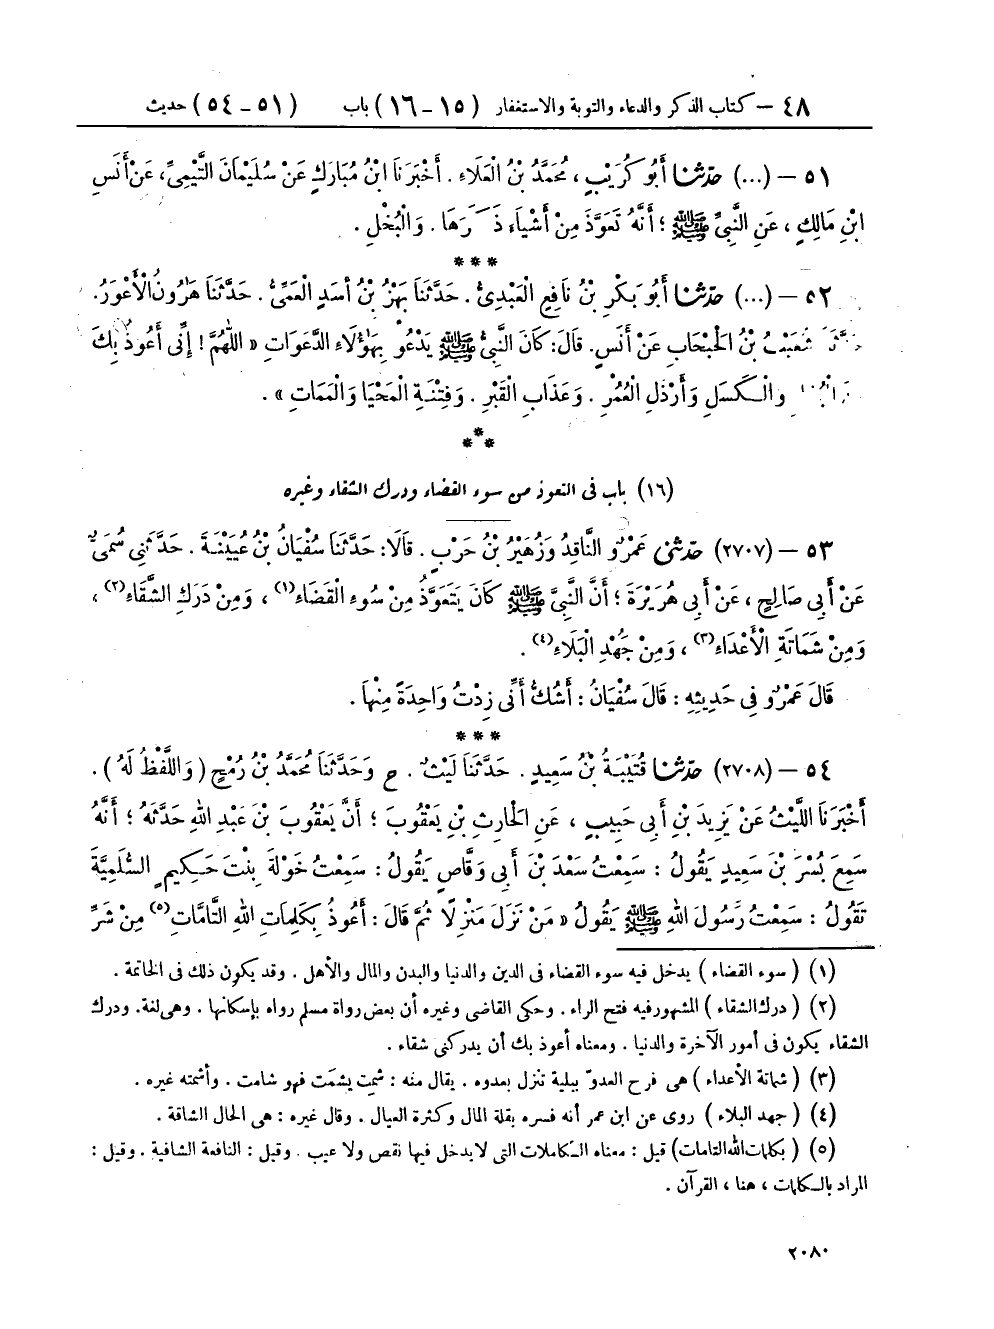 ٤٨ – كتاب الذكر والدعاء والتوبة والاستغفار (١٥ – ١٦) باب (٥١ – ٥٤) حديث
٥١ – (...) حَدَّثَنَا أَبُو كُرَيْبٍ، مُحَمَّدُ بْنُ الْعَلَاءِ. أَخْبَرَنَا ابْنُ مُبَارَكٍ عَنْ سُلَيْمَانَ التَّيْمِيِّ، عَنْ أَنَسِ
ابْنِ مَالِكٍ، عَنِ النَّبِيِّ ﷺ؛ أَنَّهُ تَعَوَّذَ مِنْ أَشْيَاءَ ذَكَرَهَا. وَالْبُخْلِ.
***
٥٢ – (...) حَدَّثَنَا أَبُو بَكْرِ بْنُ نَافِعٍ الْعَبْدِيُّ. حَدَّثَنَا بَهْزُ بْنُ أَسَدٍ الْعَمِّيُّ. حَدَّثَنَا هَارُونُ الْأَعْوَرُ.
حَدَّثَنَا شُعَيْبُ بْنُ الْحَبْحَابِ عَنْ أَنَسٍ. قَالَ: كَانَ النَّبِيُّ ﷺ يَدْعُو بِهَؤُلَاءِ الدَّعَوَاتِ « اللَّهُمَّ! إِنِّي أَعُوذُ بِكَ
وَالْكَسَلِ وَأَرْذَلِ الْعُمُرِ. وَعَذَابِ الْقَبْرِ. وَفِتْنَةِ الْمَحْيَا وَالْمَمَاتِ ».
***
(١٦) باب في التعوذ من سوء القضاء ودرك الشقاء وغيره
٥٣ – (٢٧٠٧) حَدَّثَنِي عَمْرٌو النَّاقِدُ وَزُهَيْرُ بْنُ حَرْبٍ. قَالَا: حَدَّثَنَا سُفْيَانُ بْنُ عُيَيْنَةَ. حَدَّثَنِي سُمَيٌّ
عَنْ أَبِي صَالِحٍ، عَنْ أَبِي هُرَيْرَةَ؛ أَنَّ النَّبِيَّ ﷺ كَانَ يَتَعَوَّذُ مِنْ سُوءِ الْقَضَاءِ(١)، وَمِنْ دَرَكِ الشَّقَاءِ(٢)،
وَمِنْ شَمَاتَةِ الْأَعْدَاءِ(٣)، وَمِنْ جَهْدِ الْبَلَاءِ(٤).
قَالَ عَمْرٌو فِي حَدِيثِهِ: قَالَ سُفْيَانُ: أَشُكُّ أَنِّي زِدْتُ وَاحِدَةً مِنْهَا.
***
٥٤ – (٢٧٠٨) حَدَّثَنَا قُتَيْبَةُ بْنُ سَعِيدٍ. حَدَّثَنَا لَيْثٌ. ح وَحَدَّثَنَا مُحَمَّدُ بْنُ رُمْحٍ (وَاللَّفْظُ لَهُ).
أَخْبَرَنَا اللَّيْثُ عَنْ يَزِيدَ بْنِ أَبِي حَبِيبٍ، عَنِ الْحَارِثِ بْنِ يَعْقُوبَ؛ أَنَّ يَعْقُوبَ بْنَ عَبْدِ اللهِ حَدَّثَهُ؛ أَنَّهُ
سَمِعَ بُسْرَ بْنَ سَعِيدٍ يَقُولُ: سَمِعْتُ سَعْدَ بْنَ أَبِي وَقَّاصٍ يَقُولُ: سَمِعْتُ خَوْلَةَ بِنْتَ حَكِيمٍ السُّلَمِيَّةَ
تَقُولُ: سَمِعْتُ رَسُولَ اللهِ ﷺ يَقُولُ « مَنْ نَزَلَ مَنْزِلًا ثُمَّ قَالَ: أَعُوذُ بِكَلِمَاتِ اللهِ التَّامَّاتِ(٥) مِنْ شَرِّ
(١) (سوء القضاء) يدخل فيه سوء القضاء في الدين والدنيا والبدن والمال والأهل. وقد يكون ذلك في الخاتمة.
(٢) (درك الشقاء) المشهور فيه فتح الراء. وحكى القاضي وغيره أن بعض رواة مسلم رواه بإسكانها. وهي لغة. ودرك
الشقاء يكون في أمور الآخرة والدنيا. ومعناه أعوذ بك أن يدركني شقاء.
(٣) (شماتة الأعداء) هي فرح العدوّ ببلية تنزل بعدوه. يقال منه: شَمِتَ يشمَت فهو شامت. وأشمته غيره.
(٤) (جهد البلاء) روى عن ابن عمر أنه فسره بقلة المال وكثرة العيال. وقال غيره: هي الحال الشاقة.
(٥) (بكلمات الله التامات) قيل: معناه الكاملات التي لا يدخل فيها نقص ولا عيب. وقيل: النافعة الشافية. وقيل:
المراد بالكلمات، هنا، القرآن.
٢٠٨٠